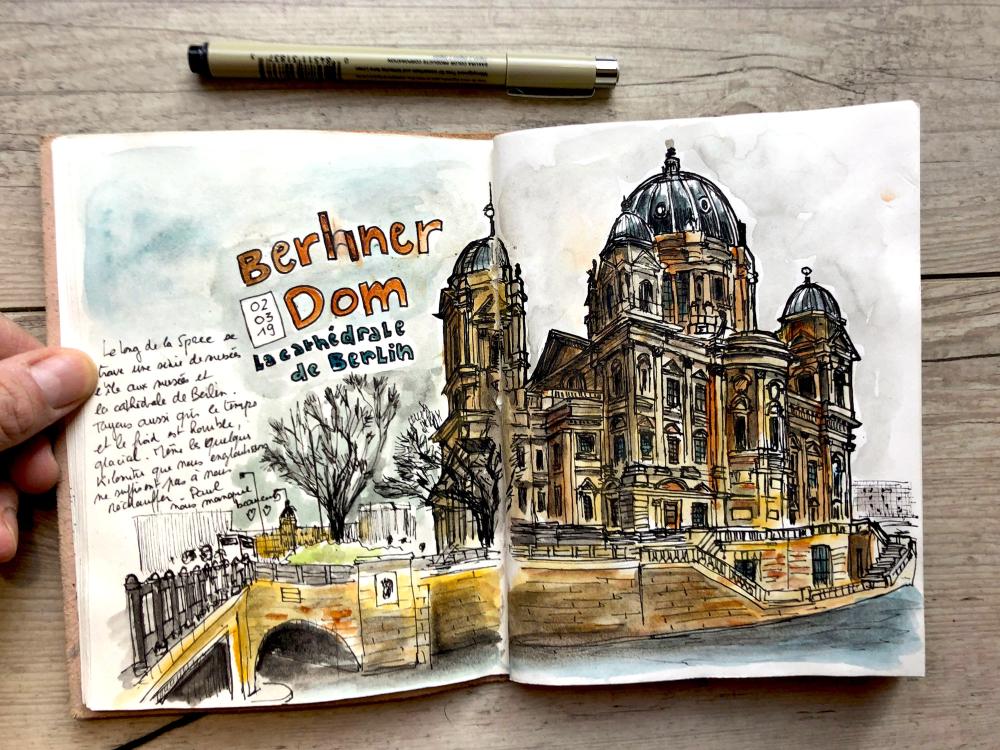 Berliner
Dom
02
03
19
la cathédrale
de Berlin
Le long de la Spree se
trouve une série de musées
l'île aux musées et
la cathédrale de Berlin.
Toujours aussi gris le temps
et le froid est horrible,
glacial. Même les quelques
kilomètres que nous
ne suffisent pas à nous
réchauffer. Paul
nous manque
SAKURA COLOR PRODUCTS CORPORATION